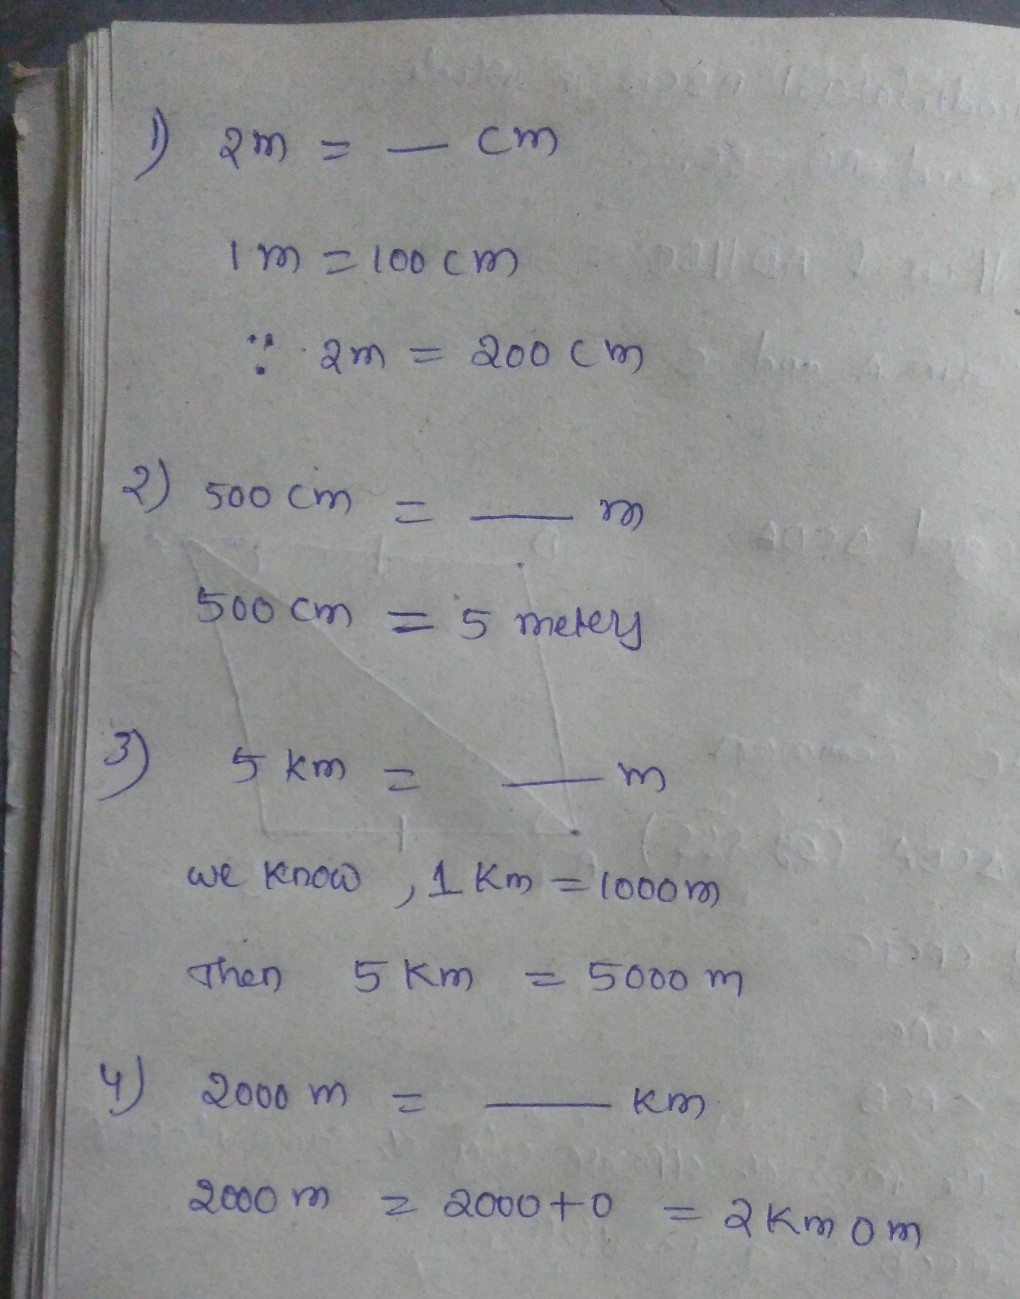 1) 2m = — cm
1m = 100 cm
∵ 2m = 200 cm
2) 500 cm = — m
500 cm = 5 meters
3) 5 km = — m
we know, 1 Km = 1000m
Then 5 Km = 5000 m
4) 2000 m = — km
2000 m = 2000+0 = 2 Km 0 m